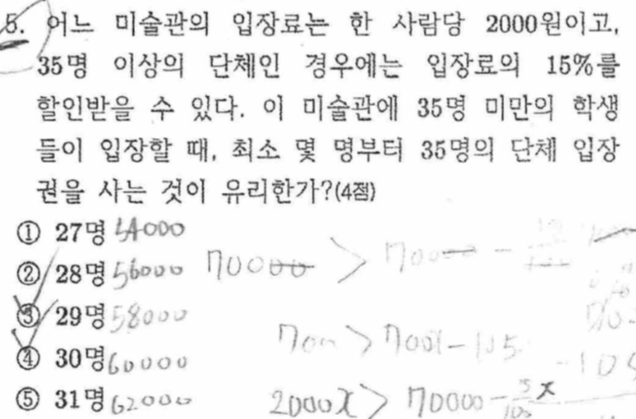 5. 어느 미술관의 입장료는 한 사람당 2000원이고,
35명 이상의 단체인 경우에는 입장료의 15%를
할인받을 수 있다. 이 미술관에 35명 미만의 학생
들이 입장할 때, 최소 몇 명부터 35명의 단체 입장
권을 사는 것이 유리한가?(4점)
① 27명 54000
② 28명 56000 70000 > 70000 -
③ 29명 58000
700 > 700x - 105
④ 30명 60000 - 105
⑤ 31명 62000 2000x > 70000 -